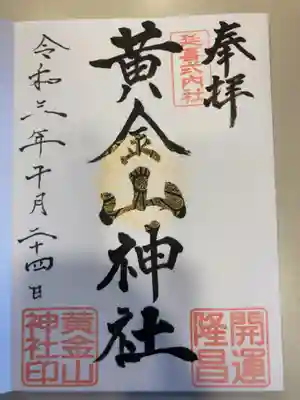 奉拝
延喜式内社
黄金山神社
令和三年十月二十四日
開運
隆昌
黄金山
神社印